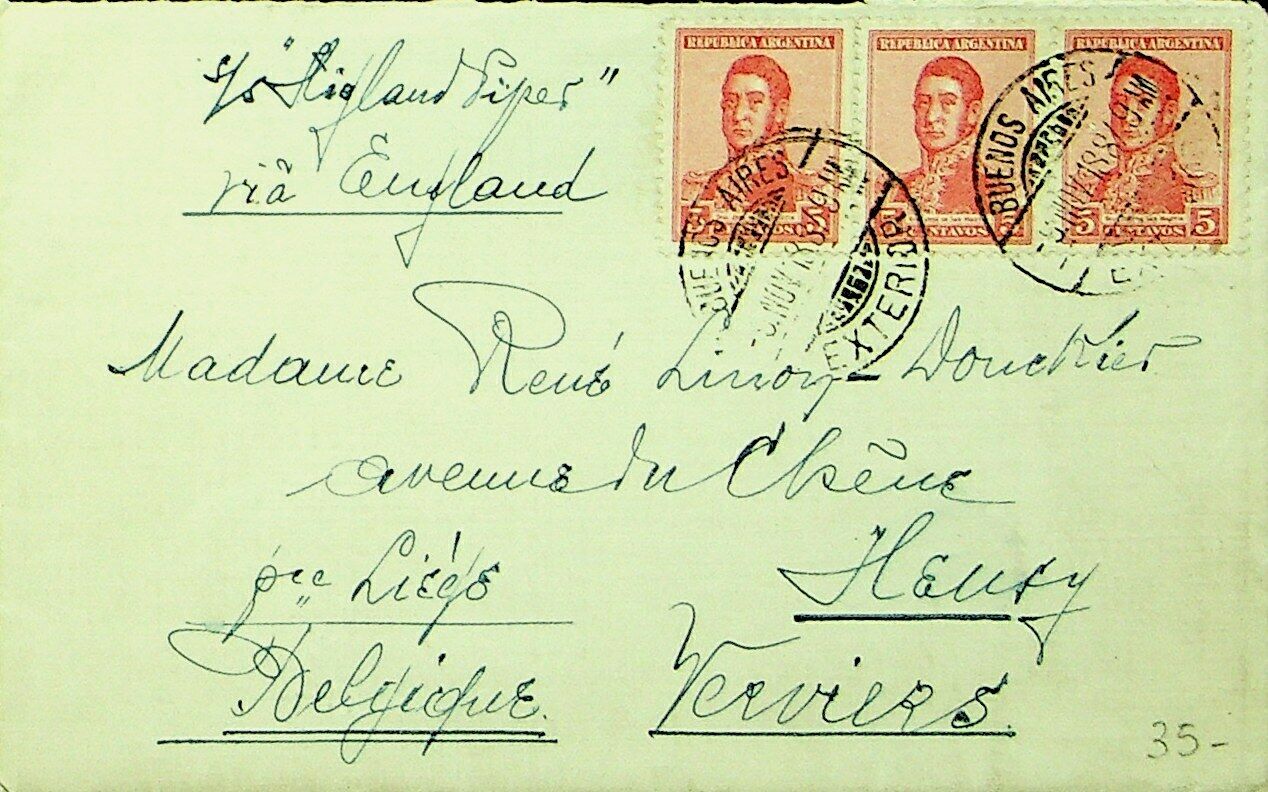 s/s "Higland Piper"
viâ England
REPUBLICA ARGENTINA
REPUBLICA ARGENTINA
REPUBLICA ARGENTINA
5 CENTAVOS 5
5 CENTAVOS 5
5 CENTAVOS 5
BUENOS AIRES
NOV 18
EXTERIOR
BUENOS AIRES
NOV 18
Madame René Donckier
avenue du Chêne
pce Liége
Heusy
Belgique.
Verviers.
35-